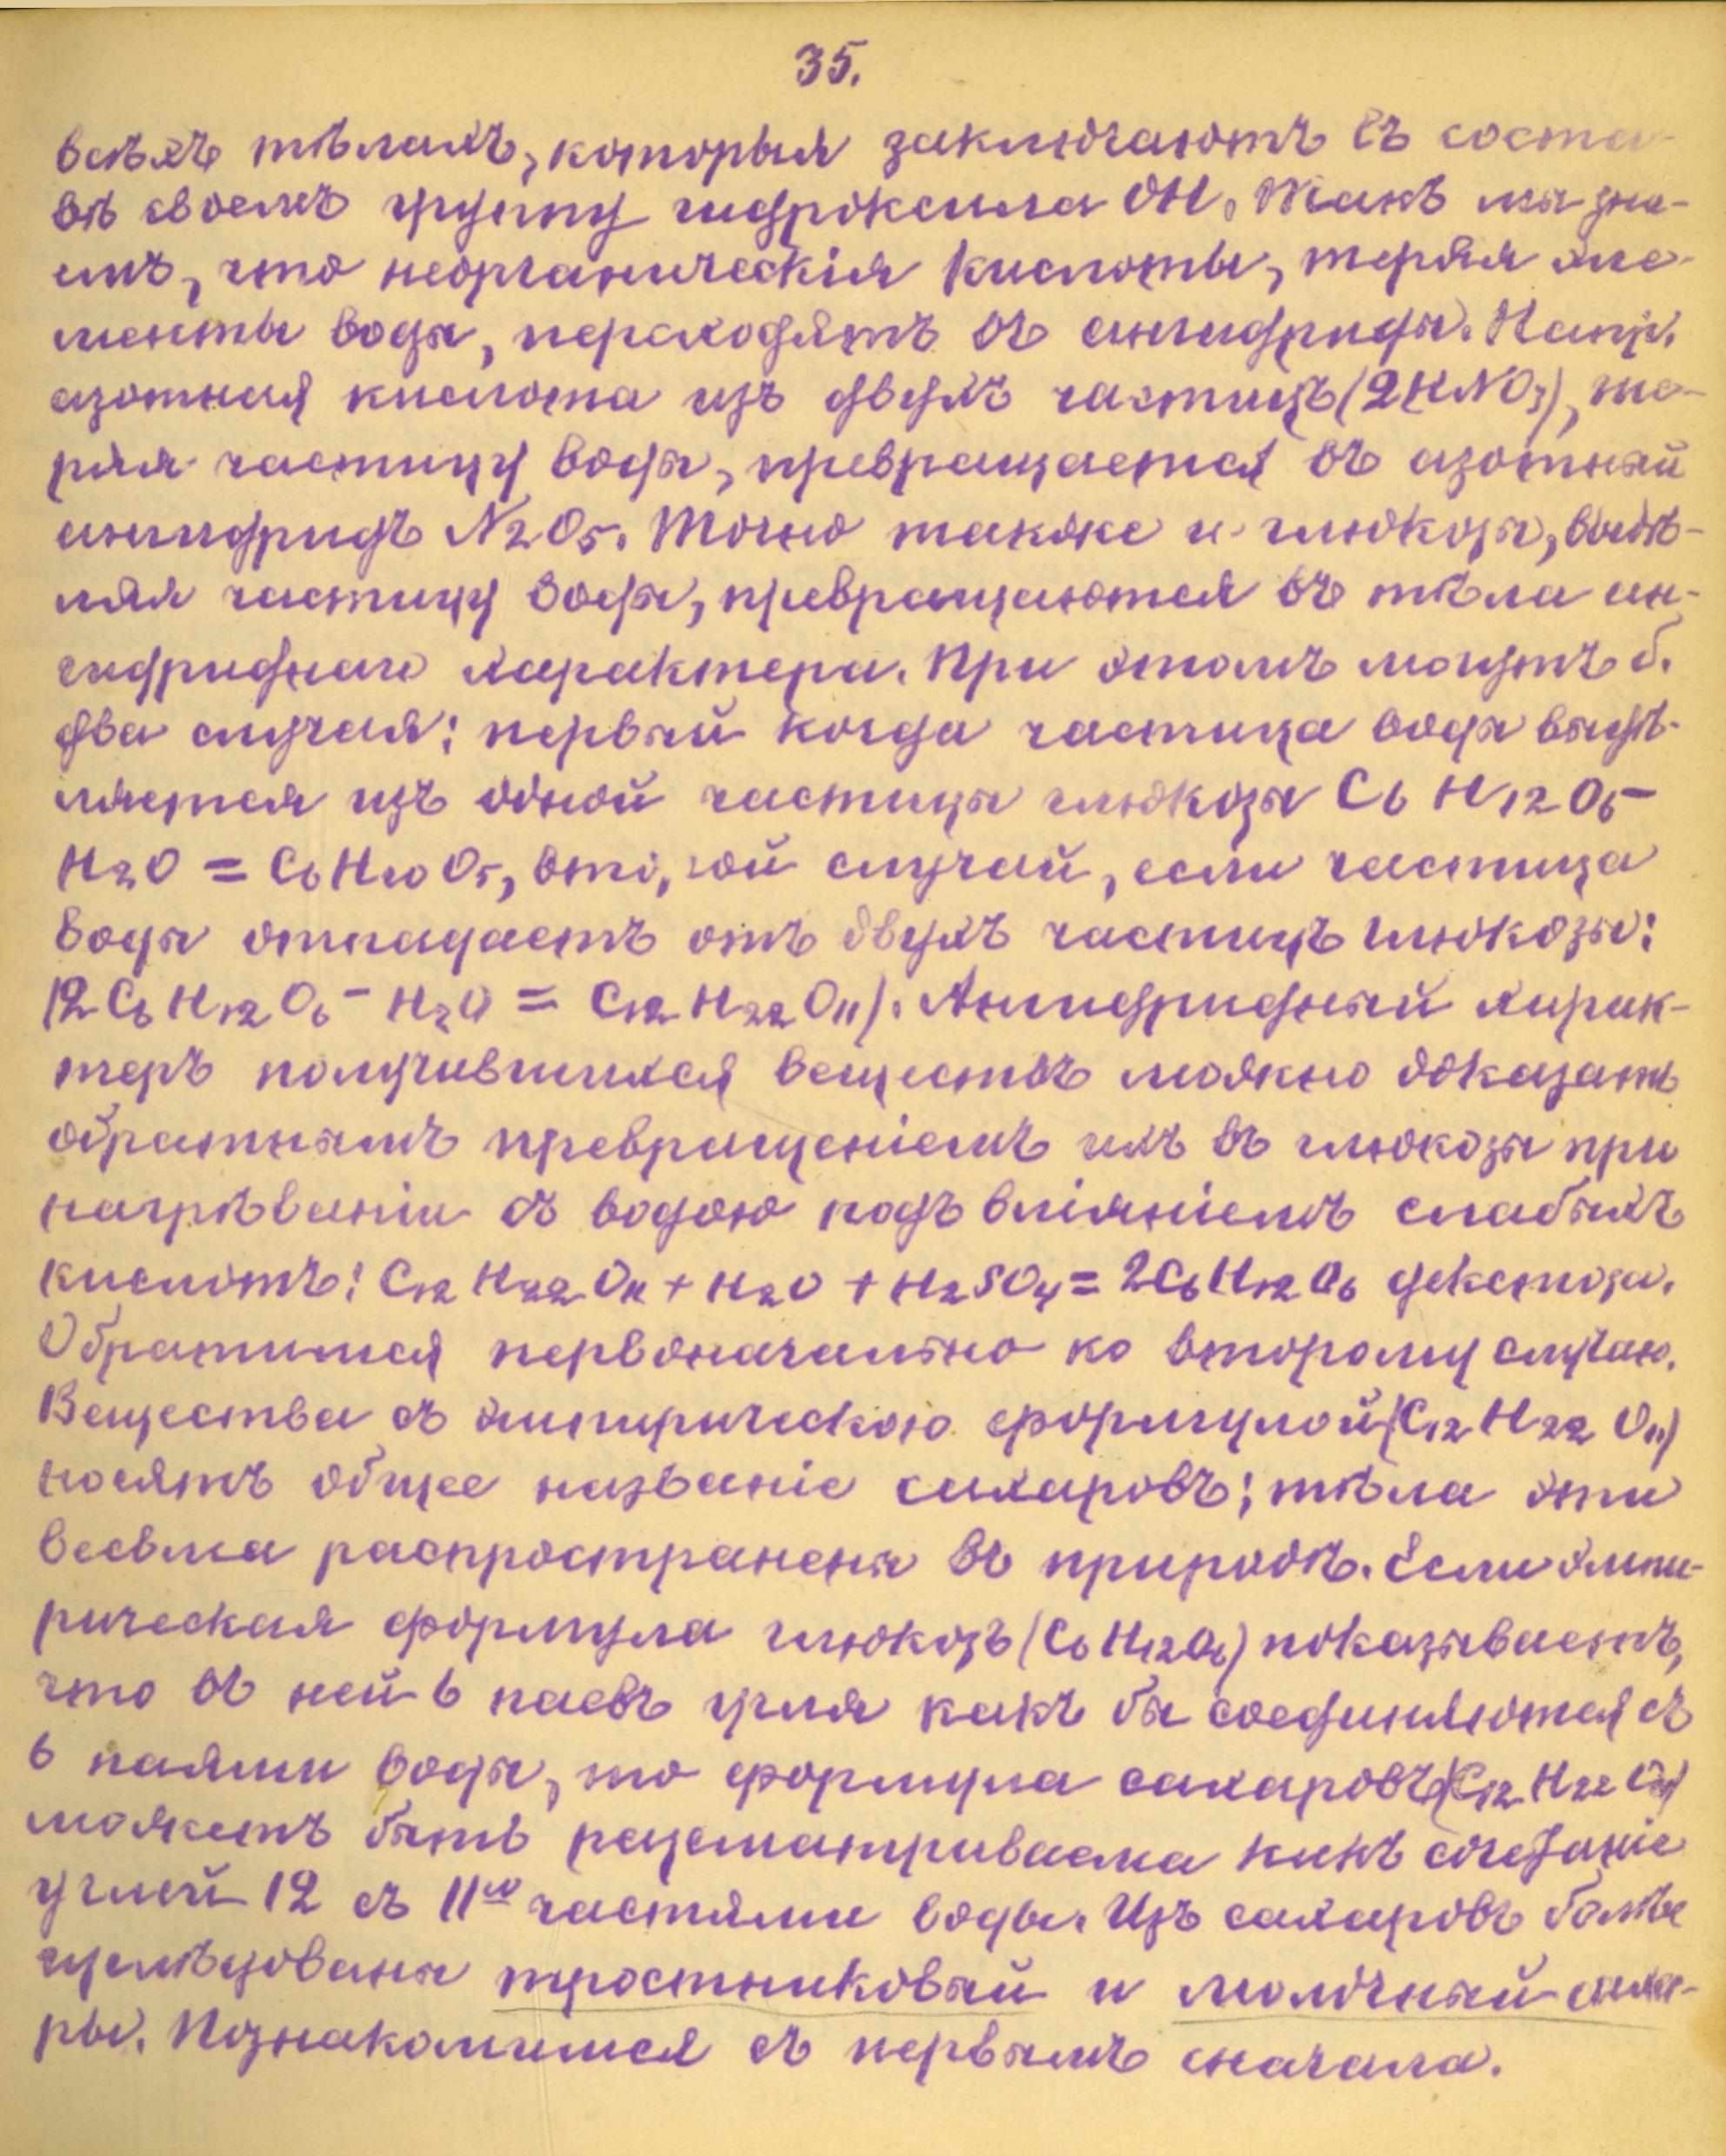 35.
всѣхъ тѣлахъ, которыя заключаютъ въ соста-
вѣ своемъ группу гидроксила ОН. Такъ мы зна-
емъ, что неорганическія кислоты, теряя эле-
менты воды, переходятъ въ ангидриды. Напр.
азотная кислота изъ двухъ частицъ (2HNO₃), те-
ряя частицу воды, превращается въ азотный
ангидридъ N₂O₅. Точно также и глюкозы, выдѣ-
ляя частицу воды, превращаются въ тѣла ан-
гидриднаго характера. При этомъ могутъ б.
два случая: первый когда частица воды выдѣ-
ляется изъ одной частицы глюкозы C₆H₁₂O₆ –
H₂O = C₆H₁₀O₅, второй случай, если частица
воды отпадаетъ отъ двухъ частицъ глюкозы:
(2C₆H₁₂O₆ – H₂O = C₁₂H₂₂O₁₁). Ангидридный харак-
теръ получившихся веществъ можно доказать
обратнымъ превращеніемъ ихъ въ глюкозы при
нагрѣваніи съ водою подъ вліяніемъ слабыхъ
кислотъ: C₁₂H₂₂O₁₁ + H₂O + H₂SO₄ = 2C₆H₁₂O₆ декстоза.
Обратимся первоначально ко второму случаю.
Вещества съ эмпирическою формулой (C₁₂H₂₂O₁₁)
носятъ общее названіе сахаровъ; тѣла эти
весьма распространены въ природѣ. Если эмпи-
рическая формула глюкозъ (C₆H₁₂O₆) показываетъ,
что въ ней 6 паевъ угля какъ бы соединяются съ
6 паями воды, то формула сахаровъ (C₁₂H₂₂O₁₁)
можетъ быть разсматриваема какъ сочетаніе
углей 12 съ 11ю частями воды. Изъ сахаровъ болѣе
изслѣдованы тростниковый и молочный саха-
ры. Познакомимся съ первымъ сначала.